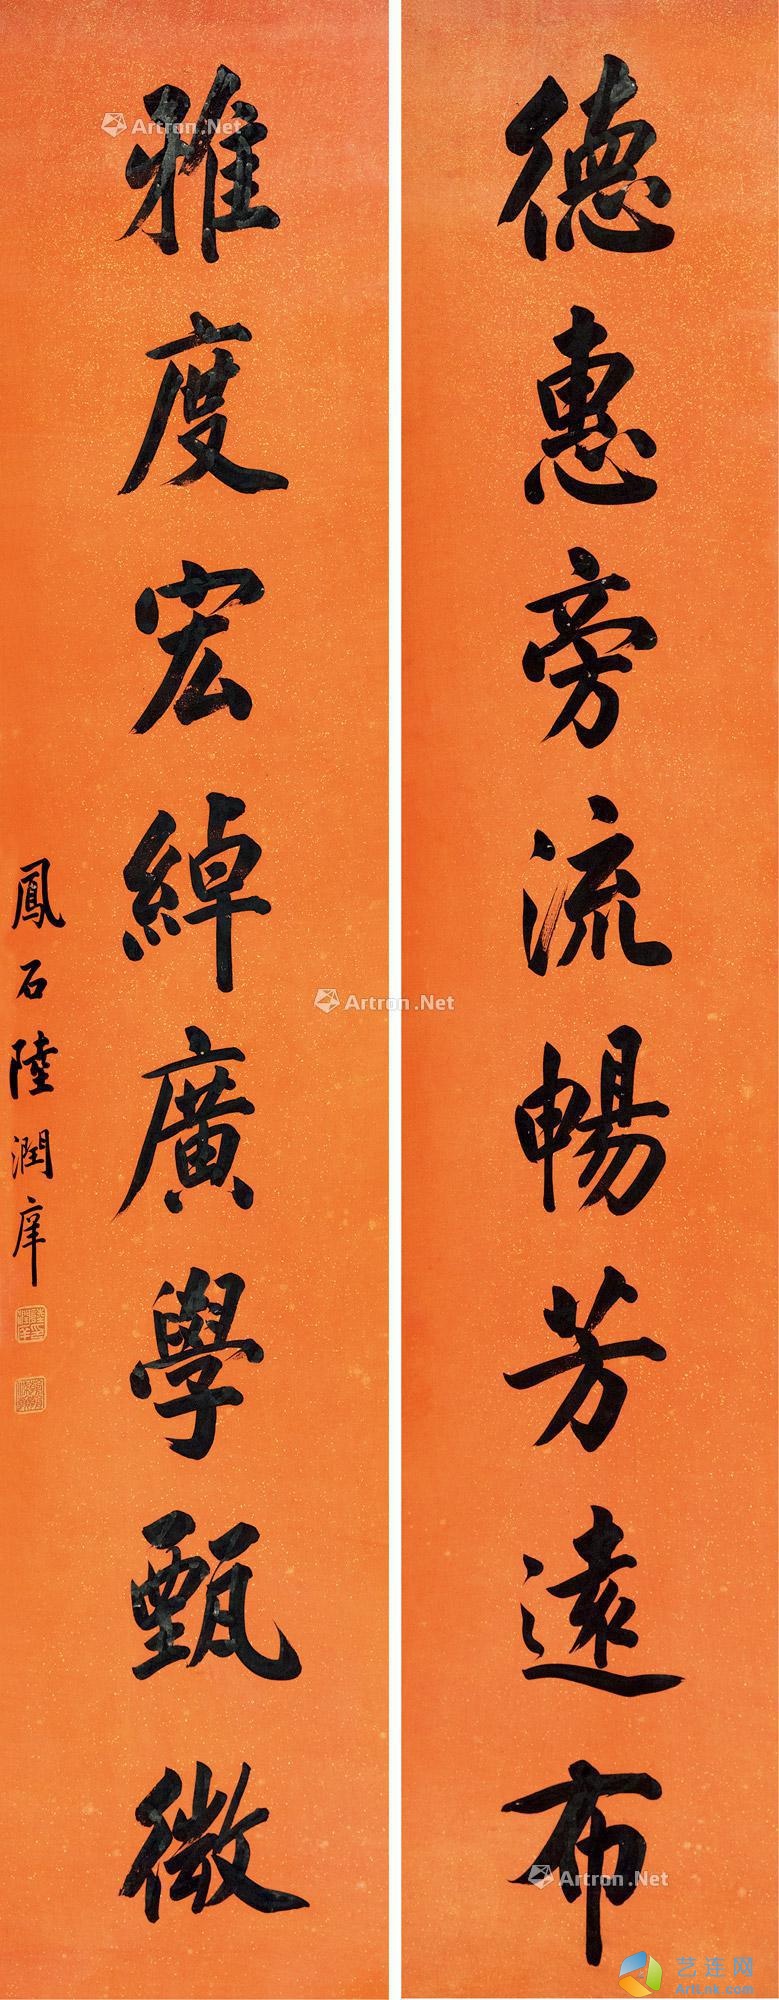 德惠旁流暢芳遠布
雅度宏綽廣學甄微
鳳石陸潤庠
Artron.Net
Artron.Net
Artron.Net
艺连网
ArtLink.com